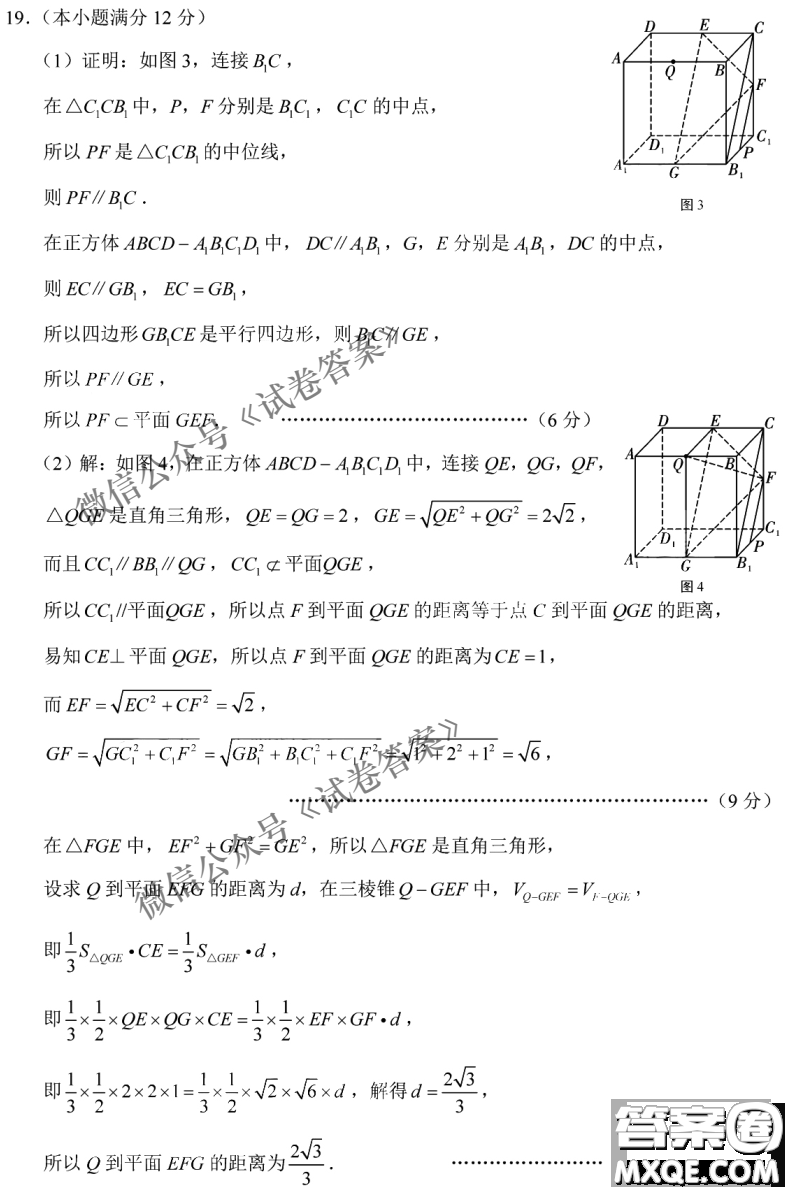 19.（本小题满分 12 分）
（1）证明：如图 3，连接 B₁C，
在 △C₁CB₁ 中，P，F 分别是 B₁C₁，C₁C 的中点，
所以 PF 是 △C₁CB₁ 的中位线，
则 PF∥B₁C．
D E C
A Q B
F
D₁ C₁
P
A₁ G B₁
图 3
在正方体 ABCD－A₁B₁C₁D₁ 中，DC∥A₁B₁，G，E 分别是 A₁B₁，DC 的中点，
则 EC∥GB₁，EC＝GB₁，
所以四边形 GB₁CE 是平行四边形，则 B₁C∥GE，
所以 PF∥GE，
所以 PF⊂平面 GEF． ……………………………………（6 分）
（2）解：如图 4，在正方体 ABCD－A₁B₁C₁D₁ 中，连接 QE，QG，QF，
△QGE 是直角三角形，QE＝QG＝2，GE＝√(QE²＋QG²)＝2√2，
而且 CC₁∥BB₁∥QG，CC₁⊄平面QGE，
D E C
A Q B
F
D₁ C₁
P
A₁ G B₁
图 4
所以 CC₁//平面QGE，所以点 F 到平面 QGE 的距离等于点 C 到平面 QGE 的距离，
易知 CE⊥平面 QGE，所以点 F 到平面 QGE 的距离为 CE＝1，
而 EF＝√(EC²＋CF²)＝√2，
GF＝√(GC₁²＋C₁F²)＝√(GB₁²＋B₁C₁²＋C₁F²)＝√(1²＋2²＋1²)＝√6，
……………………………………………………………（9 分）
在 △FGE 中，EF²＋GF²＝GE²，所以 △FGE 是直角三角形，
设求 Q 到平面 EFG 的距离为 d，在三棱锥 Q－GEF 中，V_{Q－GEF}＝V_{F－QGE}，
即 1/3 S_{△QGE}•CE＝1/3 S_{△GEF}•d，
即 1/3×1/2×QE×QG×CE＝1/3×1/2×EF×GF•d，
即 1/3×1/2×2×2×1＝1/3×1/2×√2×√6×d，解得 d＝2√3/3，
所以 Q 到平面 EFG 的距离为 2√3/3． ……………………
微信公众号《试卷答案》
微信公众号《试卷答案》
答案圈
MXQE.COM